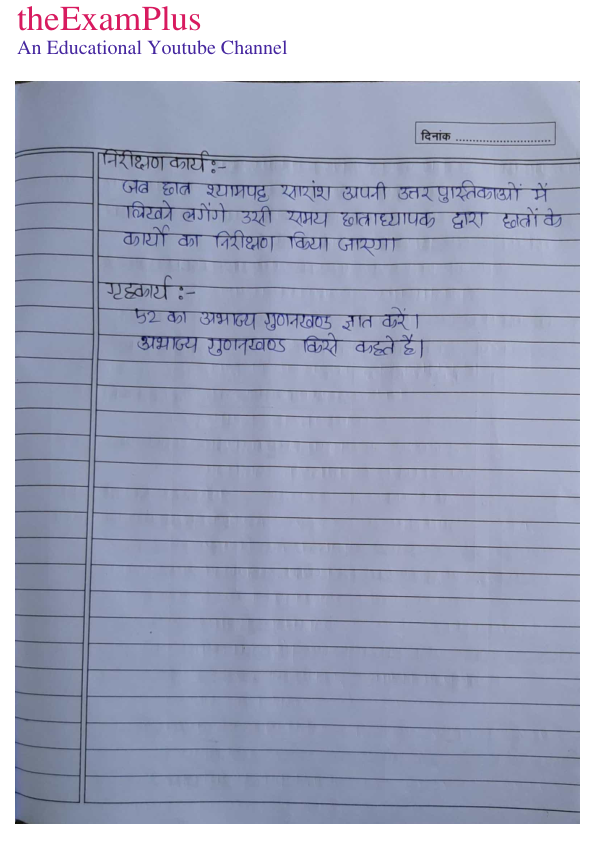 theExamPlus
An Educational Youtube Channel
दिनांक ..............................
निरीक्षण कार्य :-
जब छात्र श्यामपट्ट सारांश अपनी उत्तर पुस्तिकाओं में
लिखने लगेंगे उसी समय छात्राध्यापक द्वारा छात्रों के
कार्यों का निरीक्षण किया जाएगा
गृहकार्य :-
52 का अभाज्य गुणनखण्ड ज्ञात करें।
अभाज्य गुणनखण्ड किसे कहते हैं।